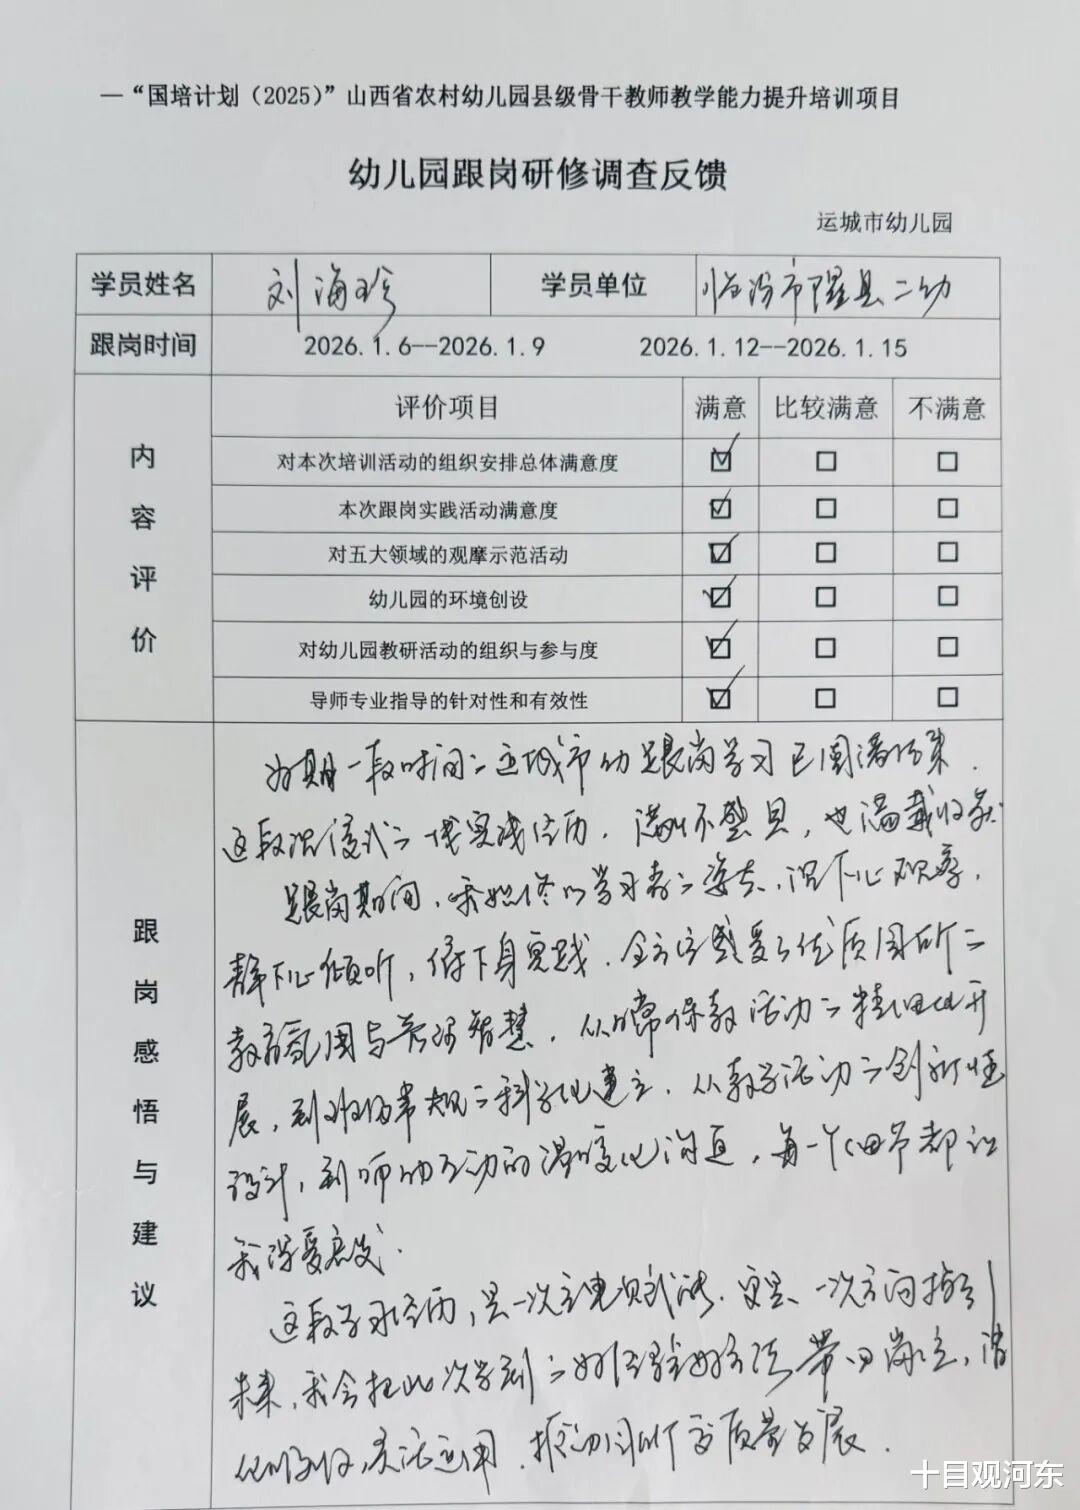 —“国培计划（2025）”山西省农村幼儿园县级骨干教师教学能力提升培训项目
幼儿园跟岗研修调查反馈
运城市幼儿园
学员姓名 刘海珍 学员单位 临汾市隰县二幼
跟岗时间 2026.1.6--2026.1.9 2026.1.12--2026.1.15
内容评价
评价项目 满意 比较满意 不满意
对本次培训活动的组织安排总体满意度 ☑ □ □
本次跟岗实践活动满意度 ☑ □ □
对五大领域的观摩示范活动 ☑ □ □
幼儿园的环境创设 ☑ □ □
对幼儿园教研活动的组织与参与度 ☑ □ □
导师专业指导的针对性和有效性 ☑ □ □
跟岗感悟与建议
为期一段时间的运城市幼跟岗学习已圆满结束.
这段沉浸式的一线实践经历,满不，也满载收获
跟岗期间,我始终以学习者的姿态,沉下心观察,
静下心倾听,俯下身实践.全方位感受了优质园所的
教育氛围与管理智慧.从日常保教活动的精细化开
展,到班级常规的科学化建立.从教学活动的创新性
设计,到师幼互动的温度化沟通,每一个细节都让
我深受启发.
这段学习经历,是一次,更是一次方向指引
未来,我会把此次学到的好经验好方法带回岗位,消
化吸收,灵活运用.园所高质量发展.
十目观河东